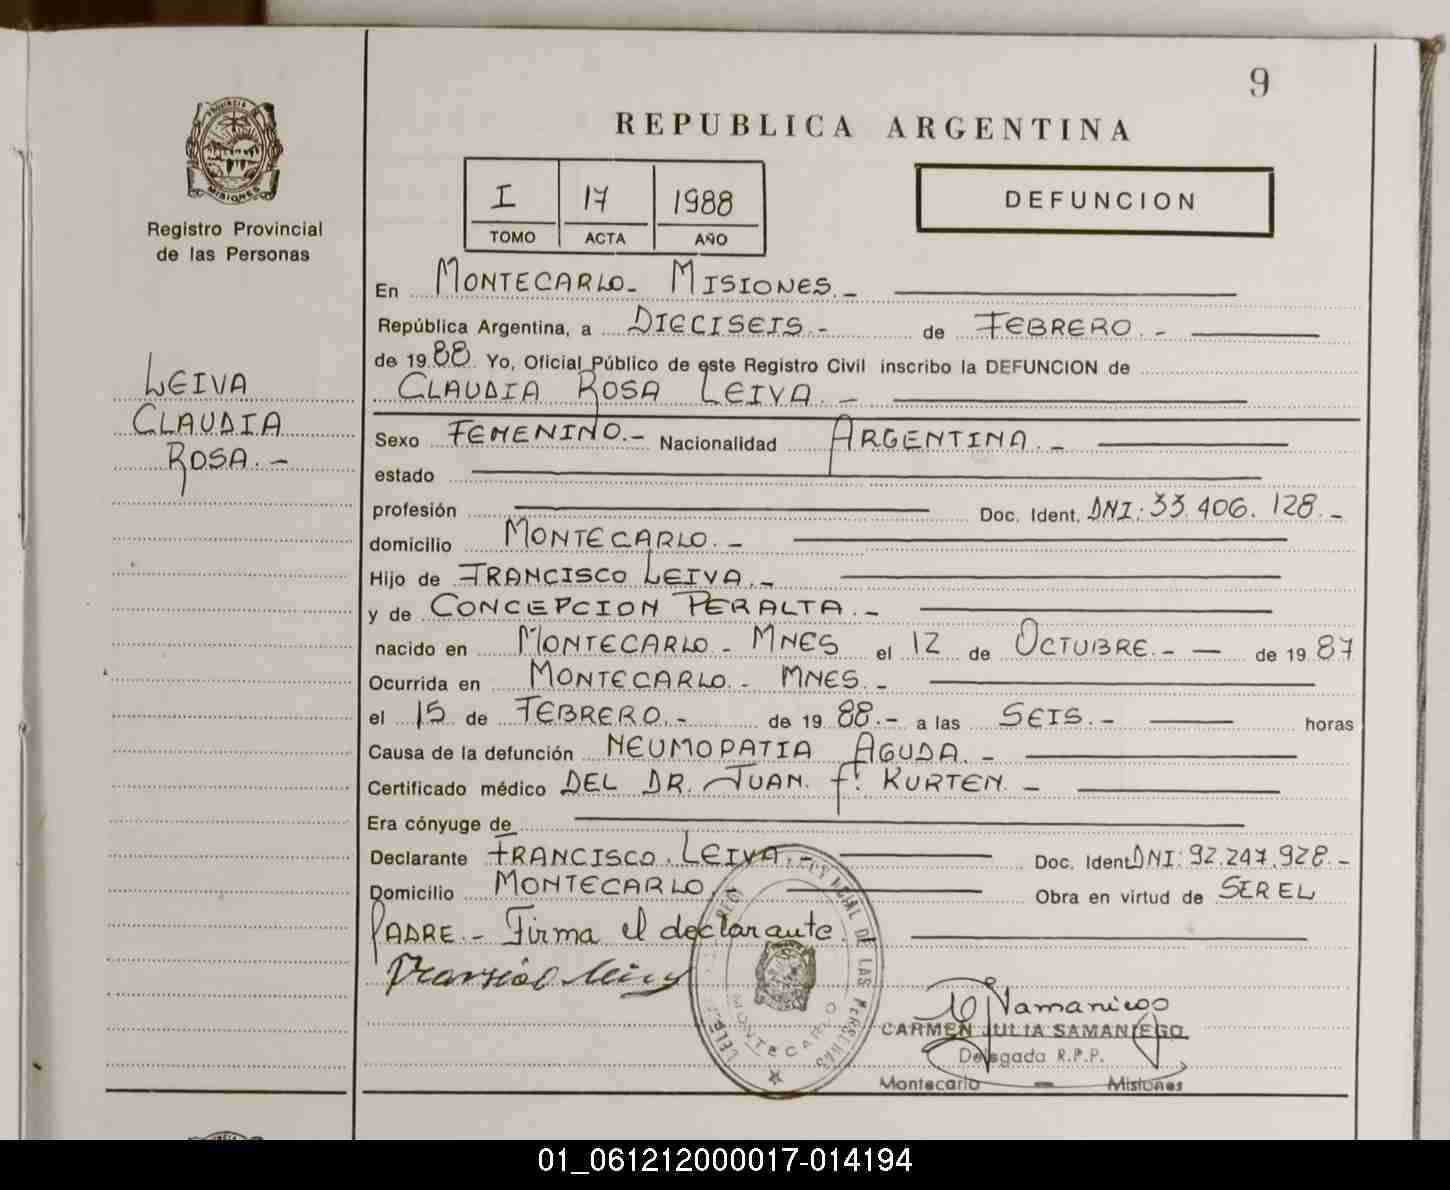 9
REPUBLICA ARGENTINA
PROVINCIA DE MISIONES
Registro Provincial
de las Personas
I 17 1988
TOMO ACTA AÑO
DEFUNCION
En MONTECARLO - MISIONES.-
República Argentina, a DIECISEIS.- de FEBRERO.-
de 19 88 Yo, Oficial Público de este Registro Civil inscribo la DEFUNCION de
CLAUDIA ROSA LEIVA.-
LEIVA
CLAUDIA
ROSA.-
Sexo FEMENINO.- Nacionalidad ARGENTINA.-
estado
profesión Doc. Ident. DNI: 33.406.128.-
domicilio MONTECARLO.-
Hijo de FRANCISCO LEIVA.-
y de CONCEPCION PERALTA.-
nacido en MONTECARLO - MNES el 12 de OCTUBRE.- - de 19 87
Ocurrida en MONTECARLO.- MNES.-
el 15 de FEBRERO.- de 19 88.- a las SEIS.- horas
Causa de la defunción NEUMOPATIA AGUDA.-
Certificado médico DEL DR. JUAN. F. KURTEN.-
Era cónyuge de
Declarante FRANCISCO. LEIVA.- Doc. Ident. DNI: 92.247.928.-
Domicilio MONTECARLO. Obra en virtud de SER EL
PADRE.- Firma el declarante.
CARMEN JULIA SAMANIEGO
Delegada R.P.P.
Montecarlo - Misiones
DE LAS PERSONAS
MONTECARLO
01_061212000017-014194